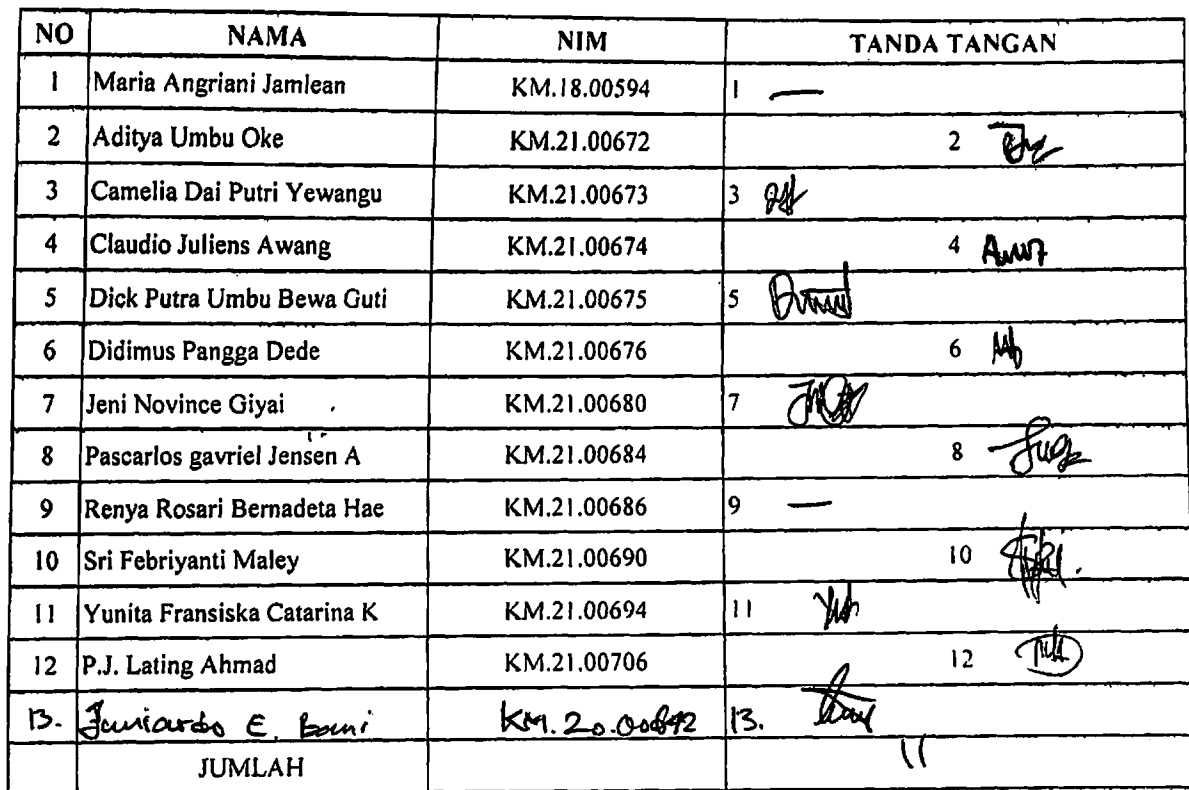 NO NAMA NIM TANDA TANGAN
1 Maria Angriani Jamlean KM.18.00594 1 —
2 Aditya Umbu Oke KM.21.00672 2
3 Camelia Dai Putri Yewangu KM.21.00673 3
4 Claudio Juliens Awang KM.21.00674 4
5 Dick Putra Umbu Bewa Guti KM.21.00675 5
6 Didimus Pangga Dede KM.21.00676 6
7 Jeni Novince Giyai KM.21.00680 7
8 Pascarlos gavriel Jensen A KM.21.00684 8
9 Renya Rosari Bernadeta Hae KM.21.00686 9 —
10 Sri Febriyanti Maley KM.21.00690 10
11 Yunita Fransiska Catarina K KM.21.00694 11
12 P.J. Lating Ahmad KM.21.00706 12
13. E. 13.
JUMLAH 11